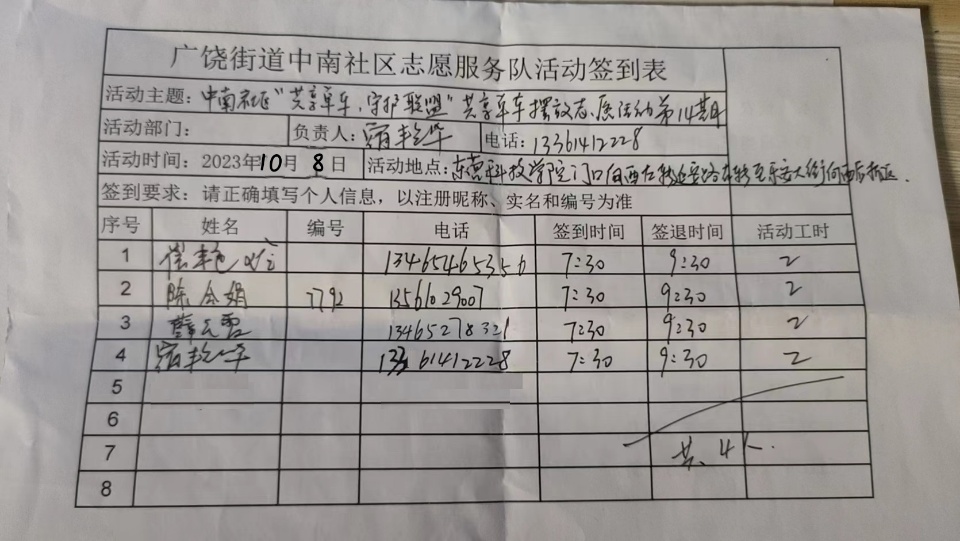 广饶街道中南社区志愿服务队活动签到表
活动主题：中南社区“共享单车，守护联盟”共享单车摆放志愿活动第14期
活动部门： 负责人： 电话：13361412228
活动时间：2023年10月8日 活动地点：东营科技学院门口向西右转
签到要求：请正确填写个人信息，以注册昵称、实名和编号为准
序号 姓名 编号 电话 签到时间 签退时间 活动工时
1 7:30 9:30 2
2 陈会娟 7792 13561029007 7:30 9:30 2
3 13465278321 7:30 9:30 2
4 13361412228 7:30 9:30 2
5
6
7 共4人
8